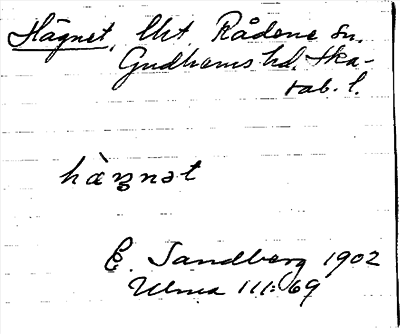 Hägnet, lht. Rådene sn.
Gudhems hd. Ska-
rab. l.
hàŋnət
E. Sandberg 1902
Ulma 111:69